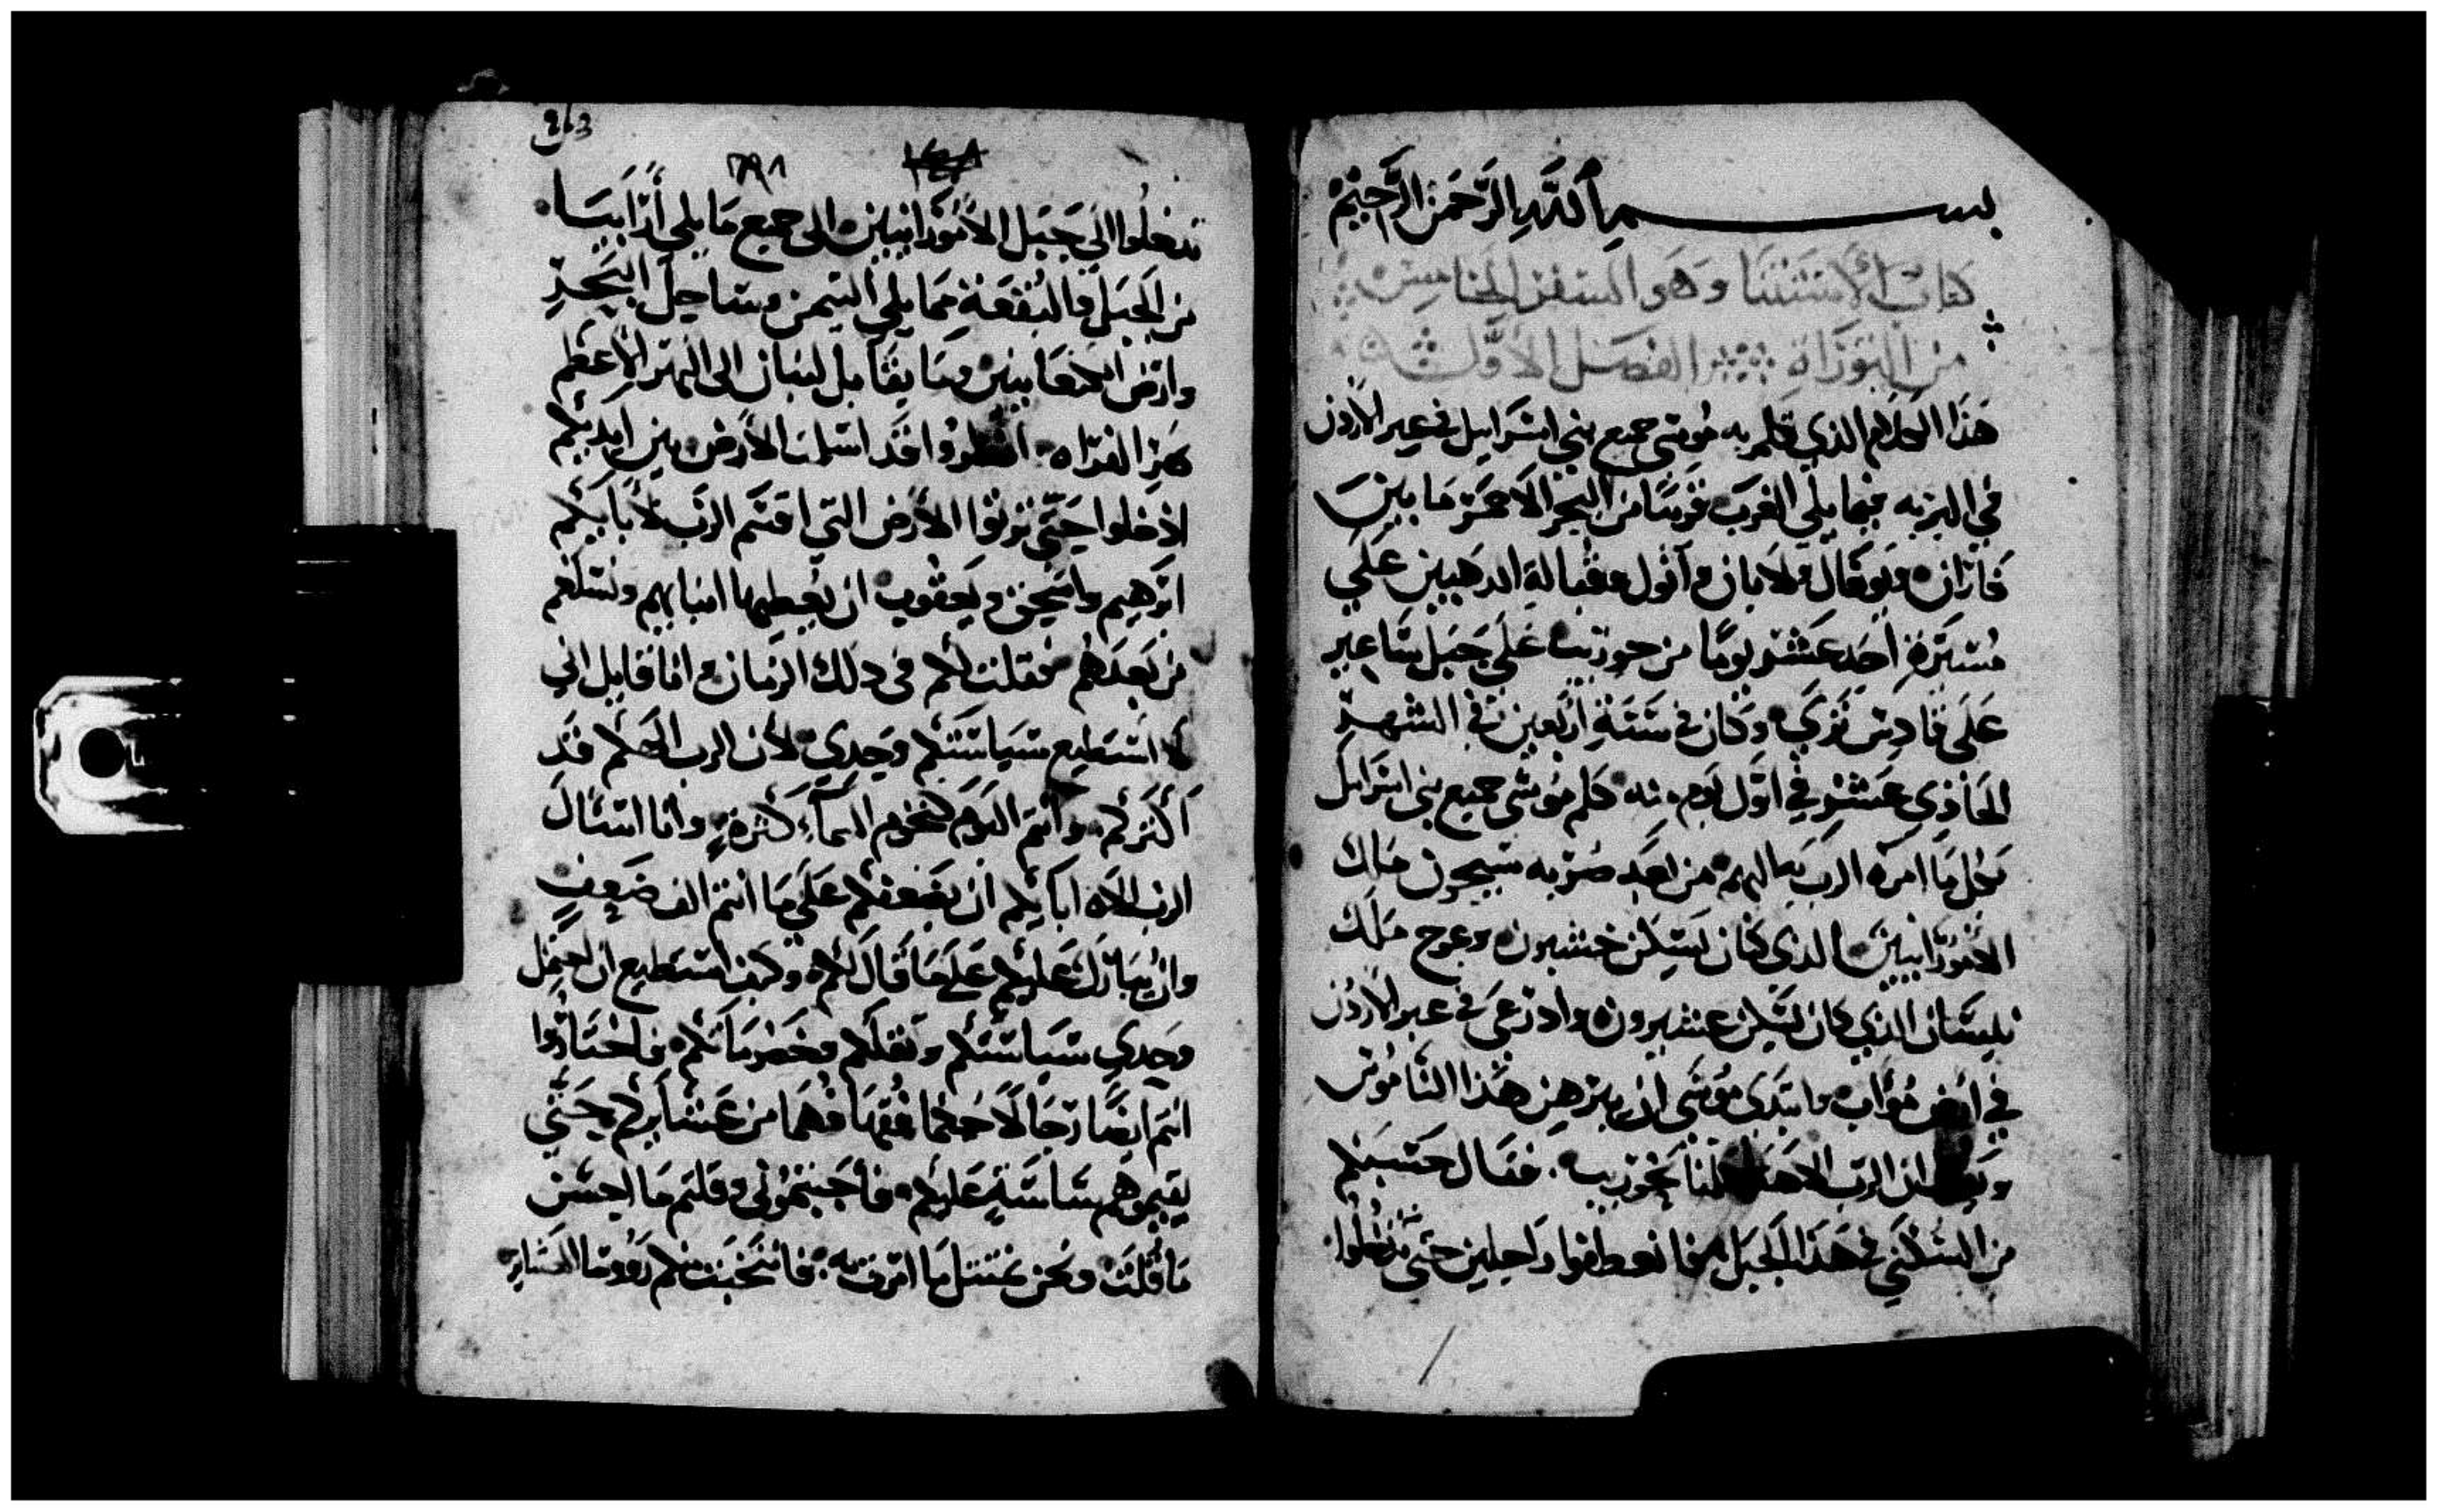 بسم الله الرحمن الرحيم
كتاب الاستثنا وهو السفر الخامس
من التوراة الفصل الاول
هذا الكلام الذي كلم به موسى جميع بني اسرايل في عبر الاردن
في البريه فيما يلي الغرب قريبا من البحر الاحمر ما بين
فاران وتوفال ولابان واتول وقبالة الدهبيين علي
مسيرة احد عشر يوما من حوريب علي جبل ساعير
علي قادس نزي وكان في سنة اربعين في الشهر
الحادي عشر في اول يوم منه كلم موسى جميع بني اسرايل
بكل ما امره الرب به اليهم من بعد ضربه سيحون ملك
الامورانيين الذي كان يسكن حشبون وعوج ملك
بليسان الذي كان يسكن عشيرون وادرعي في عبر الاردن
في ارض مواب وابتدى موسى ان يبرهن هذا الناموس
ان الرب الاهنا كلمنا بحوريب فقال حسبكم
من السكني في هذا الجبل فانعطفوا راحلين حتي تدخلوا
263
٢٩٨
تدخلوا الي جبل الامورانيين الى جميع ما يلي ارابيا
من الجبل والبقعة مما يلي التيمن وساحل البحر
وارض الكنعانيين وما يقابل لبنان الى النهر الاعظم
نهر الفراه انظروا قد اسلمت الارض بين ايديكم
ادخلوا حتي ترثوا الارض التي اقسم الرب لابايكم
ابرهيم واسحق ويعقوب ان يعطيها اياهم ونسلهم
من بعدهم فقلت لكم في ذلك الزمان وانا قايل اني
لا استطيع سياستكم وحدي لان الرب الهكم قد
اكثركم وانتم اليوم كنجوم السماء كثرة وانا اسال
الرب الاه ابايكم ان يضعفكم علي ما انتم الف ضعف
وان يبارك عليكم علي ما قال لكم وكيف استطيع ان احتمل
وحدي سياستكم وثقلكم وخصوماتكم فاختاروا
انتم ايضا رجالا حكما فقها فهما من عشايركم حتي
يقيموهم ساسة عليكم فاجبتموني وقلتم ما احسن
ما قلت ونحن نمتثل ما امرت به فانتخبت منكم رووسا العشاير